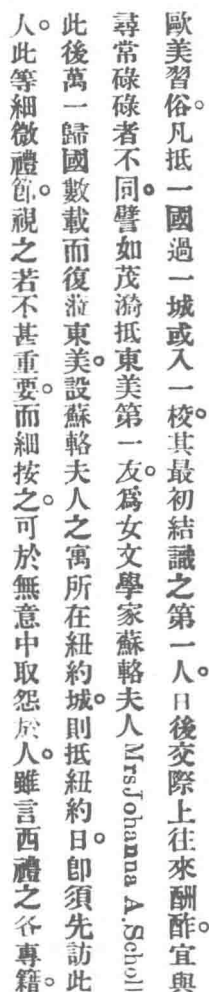 歐美習俗。凡抵一國過一城或入一校。其最初結識之第一人。日後交際上往來酬酢。宜與
尋常碌碌者不同。譬如茂漪抵東美第一友。爲女文學家蘇輅夫人MrsJohanna A.Scholl
此後萬一歸國數載而復蒞東美。設蘇輅夫人之寓所在紐約城。則抵紐約日。卽須先訪此
人。此等細微禮節。視之若不甚重要。而細按之。可於無意中取怨於人。雖言西禮之各專籍。